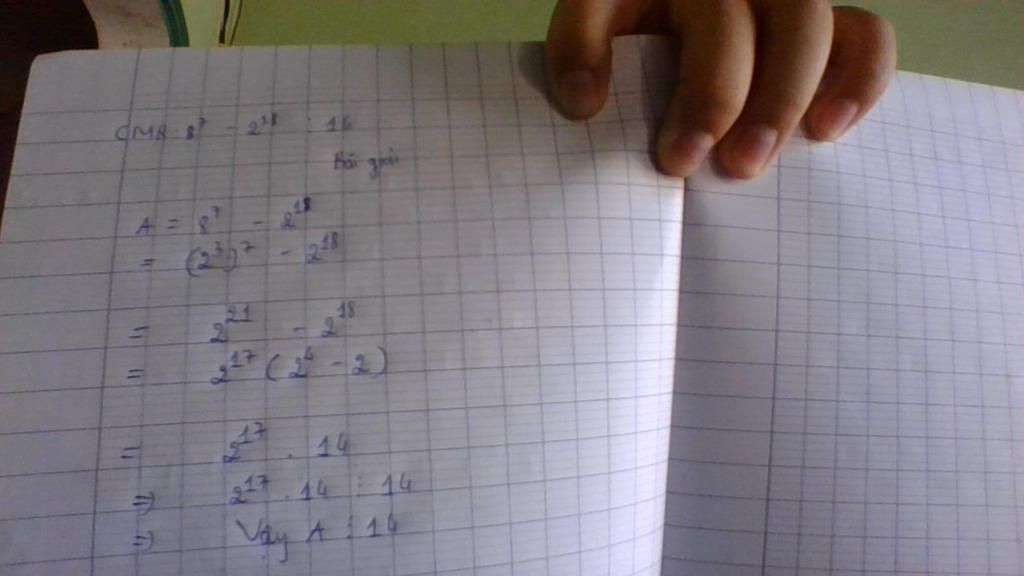 CMR 8⁷ - 2¹⁸ ⋮ 14
Bài giải
A = 8⁷ - 2¹⁸
= (2³)⁷ - 2¹⁸
= 2²¹ - 2¹⁸
= 2¹⁷ (2⁴ - 2)
= 2¹⁷ . 14
=> 2¹⁷ . 14 ⋮ 14
=> Vậy A ⋮ 14